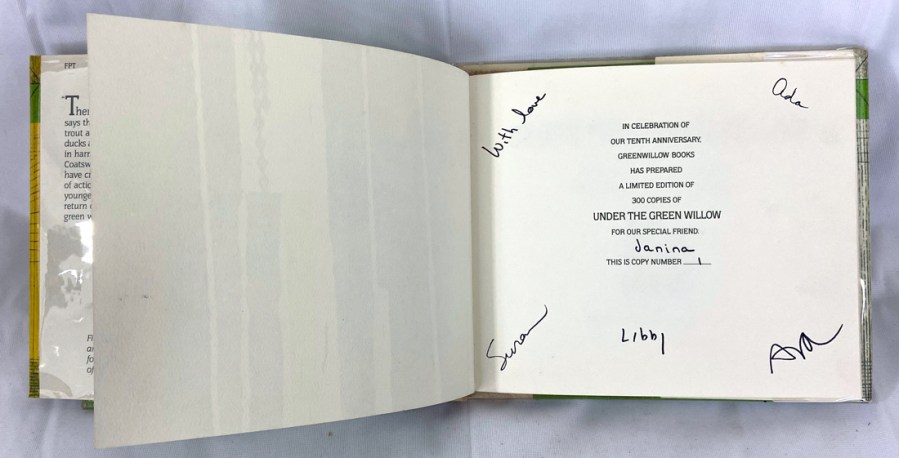 FPT
"Ther
says th
trout a
ducks a
in harr
Coatsw
have c
of actio
younge
return
green w
Fl
an
fo
of
With love
Ada
IN CELEBRATION OF
OUR TENTH ANNIVERSARY,
GREENWILLOW BOOKS
HAS PREPARED
A LIMITED EDITION OF
300 COPIES OF
UNDER THE GREEN WILLOW
FOR OUR SPECIAL FRIEND
Janina
THIS IS COPY NUMBER 1
Susan
Libby
Ava